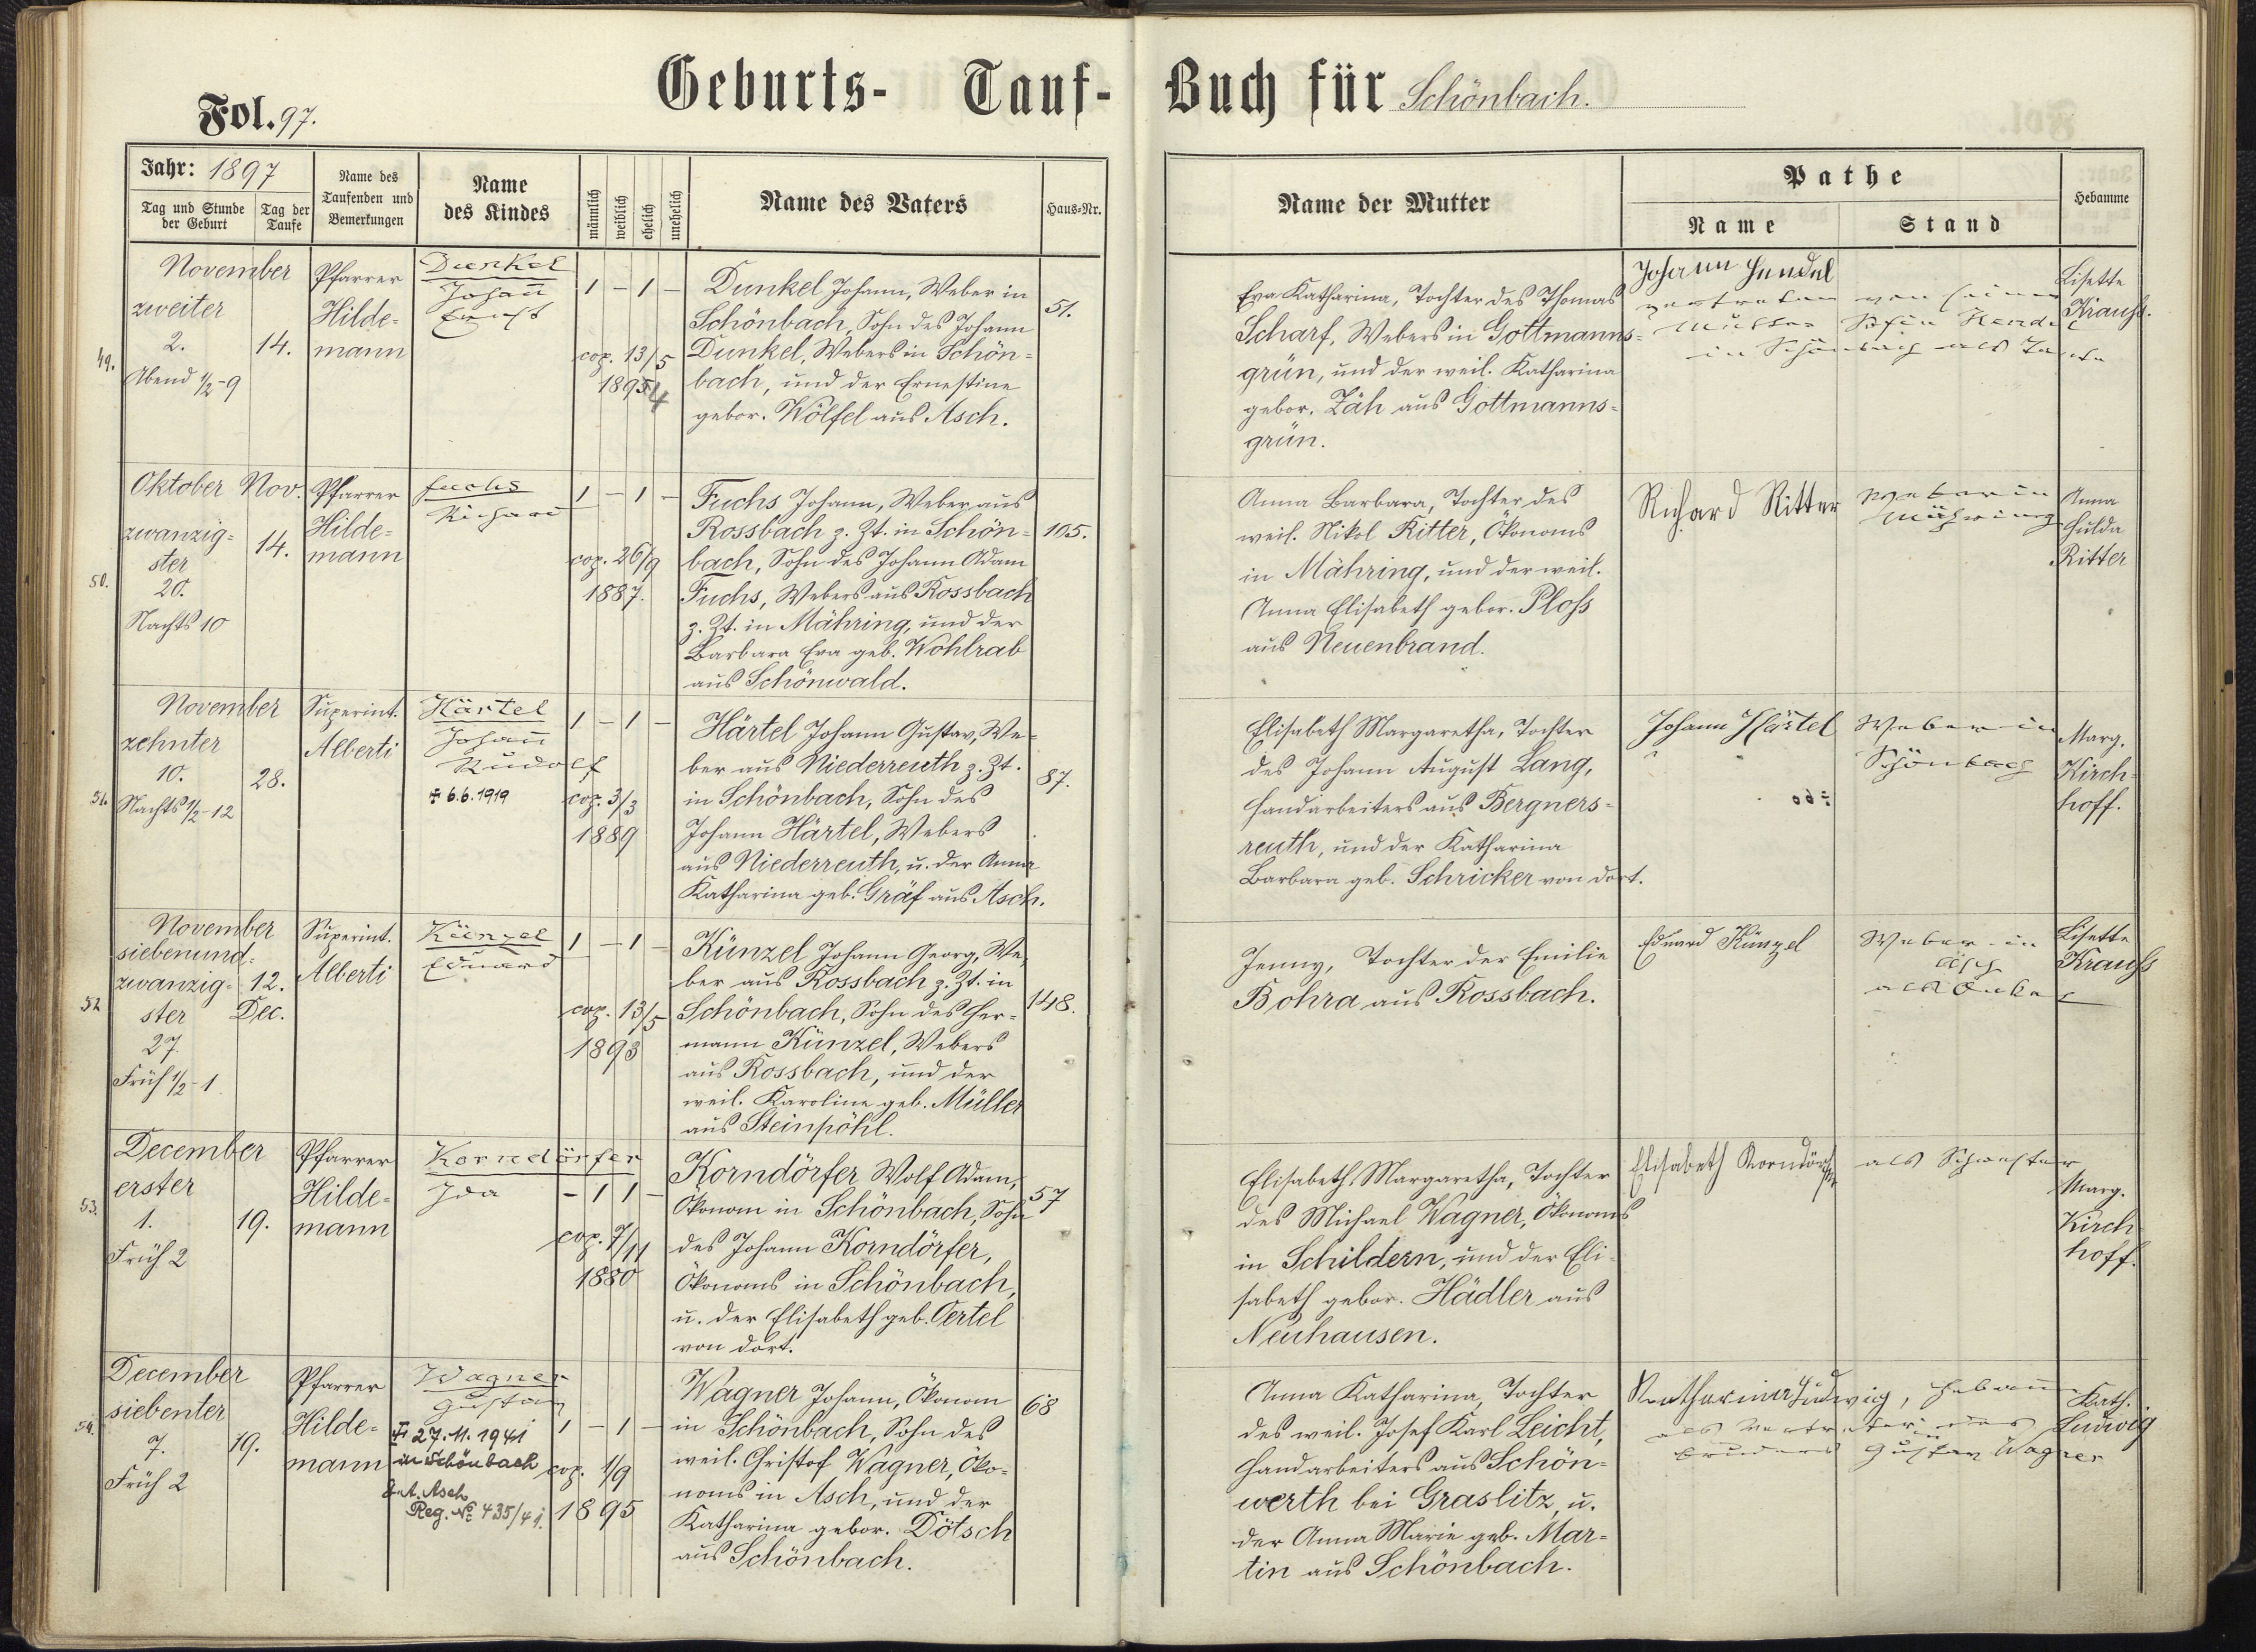 Geburts- Tauf- Buch für Schönbach.
Fol. 97.
Jahr: 1897
Tag und Stunde der Geburt
Tag der Taufe
Name des Taufenden und Bemerkungen
Name des Kindes
männlich
weiblich
ehelich
unehelich
Name des Vaters
Haus-Nr.
Name der Mutter
Pathe
Name
Stand
Hebamme
49.
November
zweiter
2.
Abend ½-9
14.
Pfarrer
Hilde-
mann
Dunkel
Johann
Ernst
1 - 1 -
cop. 13/5
1895 4
Dunkel Johann, Weber in
Schönbach, Sohn des Johann
Dunkel, Webers in Schön-
bach, und der Ernestine
gebor. Wölfel aus Asch.
51.
Eva Katharina, Tochter des Thomas
Scharf, Webers in Gottmanns-
grün, und der weil. Katharina
gebor. Zäh aus Gottmanns-
grün.
Johann Hendel
vertreten von seiner
Mutter Sofie Hendel
in Schönbach als Tante
Lisette
Krauss.
50.
Oktober
zwanzig-
ster
20.
Nachts 10
Nov.
14.
Pfarrer
Hilde-
mann
Fuchs
Richard
1 - 1 -
cop. 26/9
1887.
Fuchs Johann, Weber aus
Rossbach z. Zt. in Schön-
bach, Sohn des Johann Adam
Fuchs, Webers aus Rossbach
z. Zt. in Mähring, und der
Barbara Eva geb. Wohlrab
aus Schönwald.
105.
Anna Barbara, Tochter des
weil. Nikol Ritter, Ökonoms
in Mähring, und der weil.
Anna Elisabeth gebor. Ploss
aus Neuenbrand.
Richard Ritter
Weber in
Mähring
Anna
Hulda
Ritter
51.
November
zehnter
10.
Nachts ½-12
28.
Superint.
Alberti
Härtel
Johann
Rudolf
+ 6.6.1919
1 - 1 -
cop. 3/3
1889
Härtel Johann Gustav, We-
ber aus Niederreuth z. Zt.
in Schönbach, Sohn des
Johann Härtel, Webers
aus Niederreuth, u. der Anna
Katharina geb. Gräf aus Asch.
87.
Elisabeth Margaretha, Tochter
des Johann August Lang,
Handarbeiters aus Bergners-
reuth, und der Katharina
Barbara geb. Schricker von dort.
Johann Härtel
Weber in
Schönbach
Marg.
Kirch-
hoff.
52.
November
siebenund-
zwanzig-
ster
27.
Früh ½-1
12.
Dec.
Superint.
Alberti
Künzel
Eduard
1 - 1 -
cop. 13/5
1893
Künzel Johann Georg, We-
ber aus Rossbach z. Zt. in
Schönbach, Sohn des Her-
mann Künzel, Webers
aus Rossbach, und der
weil. Karoline geb. Müller
aus Steinpöhl.
148.
Jenny, Tochter der Emilie
Bohra aus Rossbach.
Eduard Künzel
Weber in
Asch
als Onkel
Lisette
Krauss
53.
December
erster
1.
Früh 2
19.
Pfarrer
Hilde-
mann
Korndörfer
Ida
- 1 1 -
cop. 7/11
1880
Korndörfer Wolf Adam,
Ökonom in Schönbach, Sohn
des Johann Korndörfer,
Ökonoms in Schönbach,
u. der Elisabeth geb. Oertel
von dort.
57
Elisabeth Margaretha, Tochter
des Michael Wagner, Ökonoms
in Schildern, und der Eli-
sabeth gebor. Hädler aus
Neuhausen.
Elisabeth Korndörfer
als Schwester
Marg.
Kirch-
hoff.
54.
December
siebenter
7.
Früh 2
19.
Pfarrer
Hilde-
mann
Wagner
Gustav
+ 27.11.1941
in Schönbach
Asch
Reg. № 435/41.
1 - 1 -
cop. 1/9
1895
Wagner Johann, Ökonom
in Schönbach, Sohn des
weil. Christof Wagner, Öko-
noms in Asch, und der
Katharina gebor. Dötsch
aus Schönbach.
68
Anna Katharina, Tochter
des weil. Josef Karl Leicht,
Handarbeiters aus Schön-
werth bei Graslitz, u.
der Anna Marie geb. Mar-
tin aus Schönbach.
Katharina Ludwig, Hebamme
als Vertreterin des
Bruders Gustav Wagner
Kath.
Ludwig